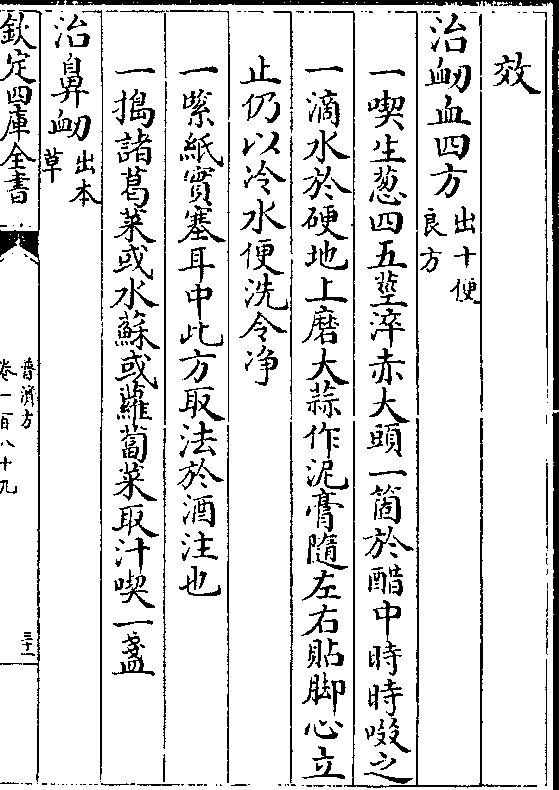 效
治衂血四方出十便良方
一喫生葱四五莖淬赤大頭一箇於醋中時時啜之
一滴水於硬地上磨大蒜作泥膏隨左右貼脚心立
止仍以冷水便洗令净
一緊紙實塞耳中此方取法於酒注也
一搗諸葛菜或水蘇或蘿蔔菜取汁喫一盞
治鼻衂出本草
欽定四庫全書
普濟方
卷一百八十九
三十一